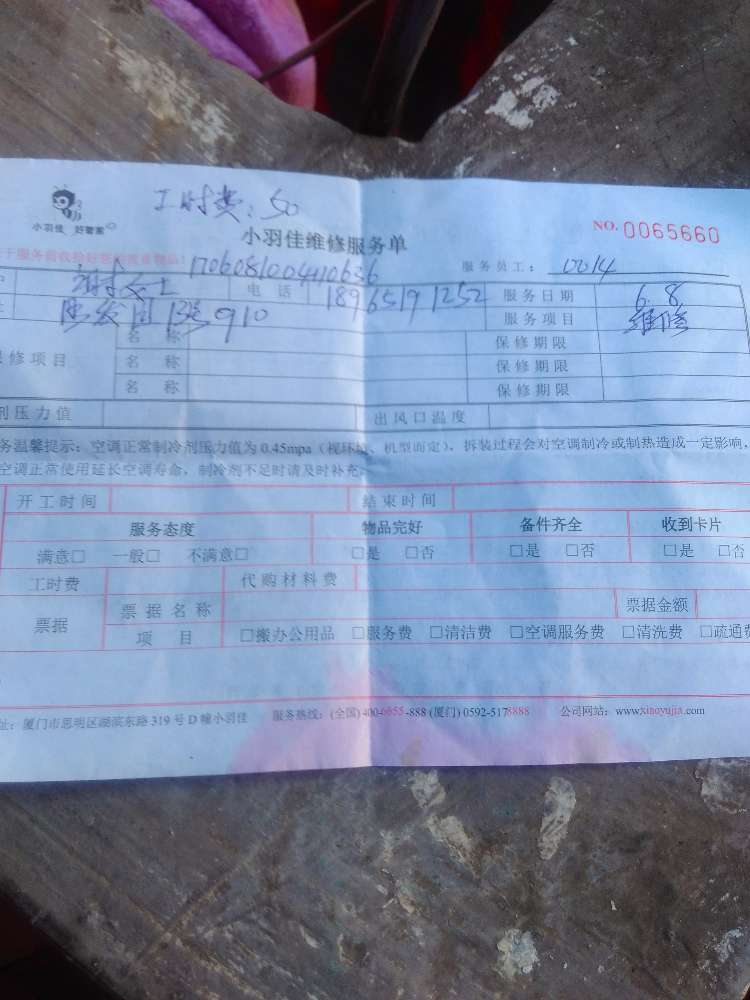 工时费：50
小羽佳 好管家
小羽佳维修服务单
NO. 0065660
于服务前收捡好
170608100410636
服务员工： 0014
谢女士 电话 18965191252 服务日期 6.8
13 910 服务项目 维修
修项目 名称 保修期限
名称 保修期限
名称 保修期限
剂压力值 出风口温度
务温馨提示：空调正常制冷剂压力值为0.45mpa（视环境、机型而定），拆装过程会对空调制冷或制热造成一定影响，
空调正常使用延长空调寿命，制冷剂不足时请及时补充。
开工时间 结束时间
服务态度 物品完好 备件齐全 收到卡片
满意□ 一般□ 不满意□ □是 □否 □是 □否 □是 □否
工时费 代购材料费
票据 票据名称 票据金额
项目 □搬办公用品 □服务费 □清洁费 □空调服务费 □清洗费 □疏通费
址：厦门市思明区湖滨东路319号D幢小羽佳 服务热线：(全国) 400-6655-888 (厦门) 0592-5178888 公司网站：www.xiaoyujia.com